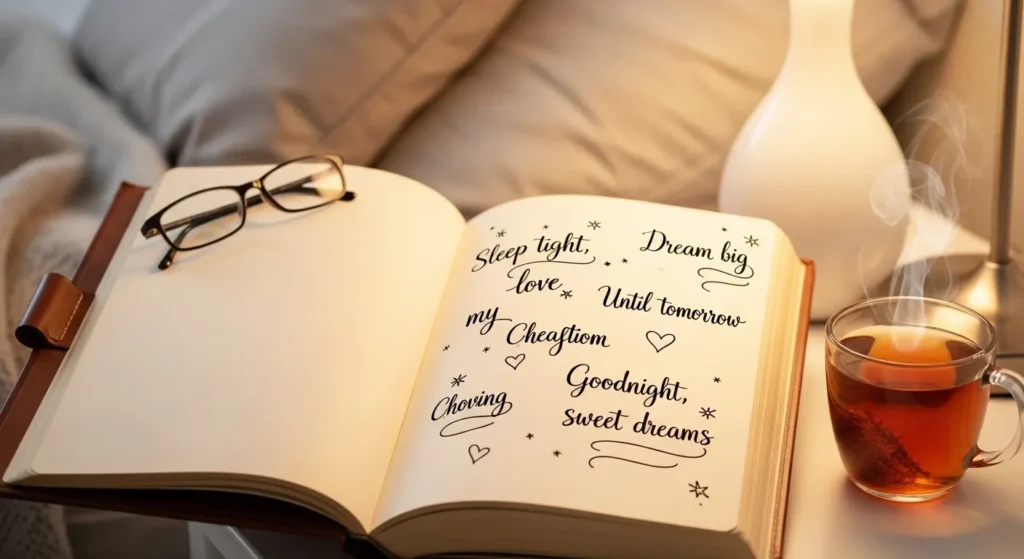 Sleep tight,
love
Dream big
Until tomorrow
my Cheaftiom
Choving
Goodnight,
sweet dreams